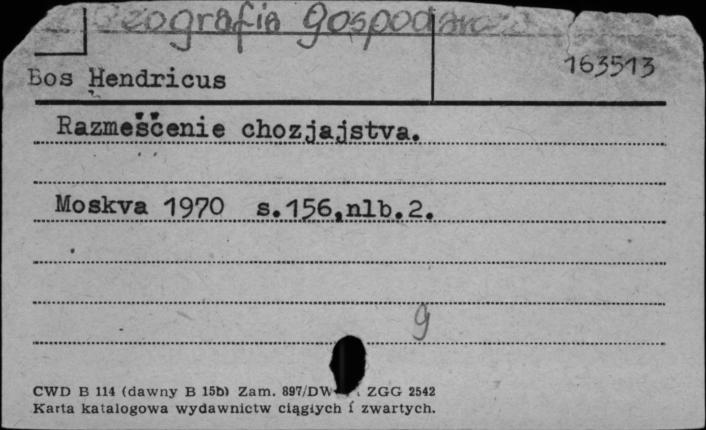 Geografia Gospodarcza
163513
Bos Hendricus
Razmeščenie chozjajstva.
Moskva 1970 s.156,nlb.2.
9
CWD B 114 (dawny B 15b) Zam. 897/DW ZGG 2542
Karta katalogowa wydawnictw ciągłych i zwartych.